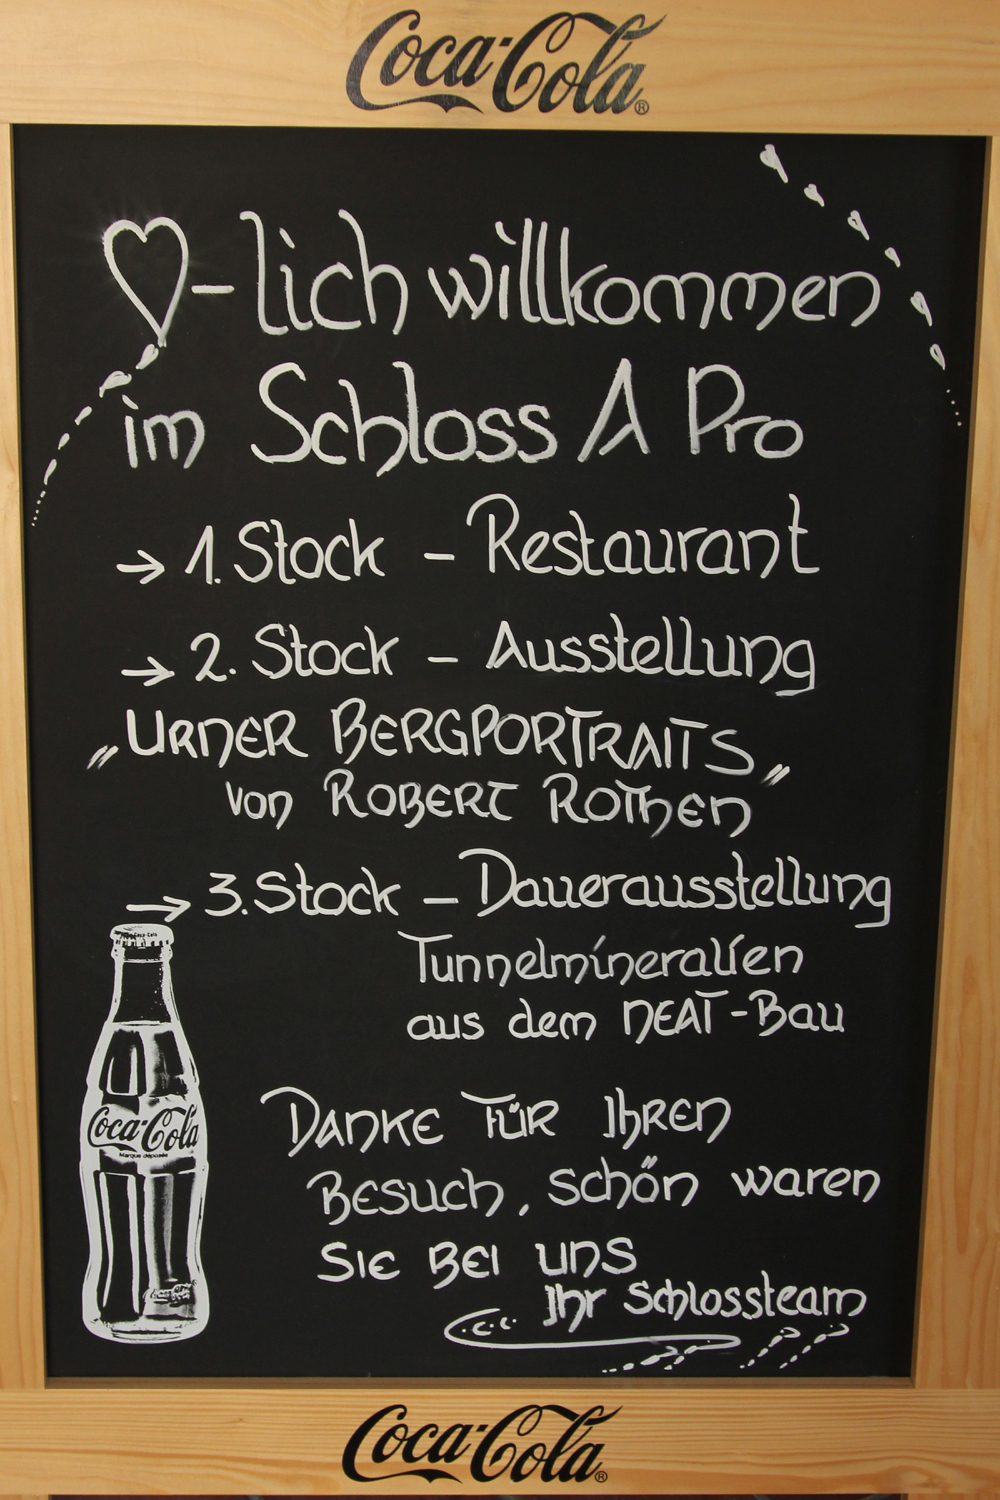 Coca-Cola®
♡-lich willkommen
im Schloss A Pro
→ 1. Stock – Restaurant
→ 2. Stock – Ausstellung
„URNER BERGPORTRAITS„
von ROBERT ROTHEN
→ 3. Stock – Dauerausstellung
Tunnelmineralien
aus dem NEAT-Bau
DANKE FÜR IHREN
BESUCH, schön waren
SIE BEI UNS
Ihr Schlossteam
Coca-Cola
Coca-Cola
Marque déposée
Coca-Cola
Coca-Cola®